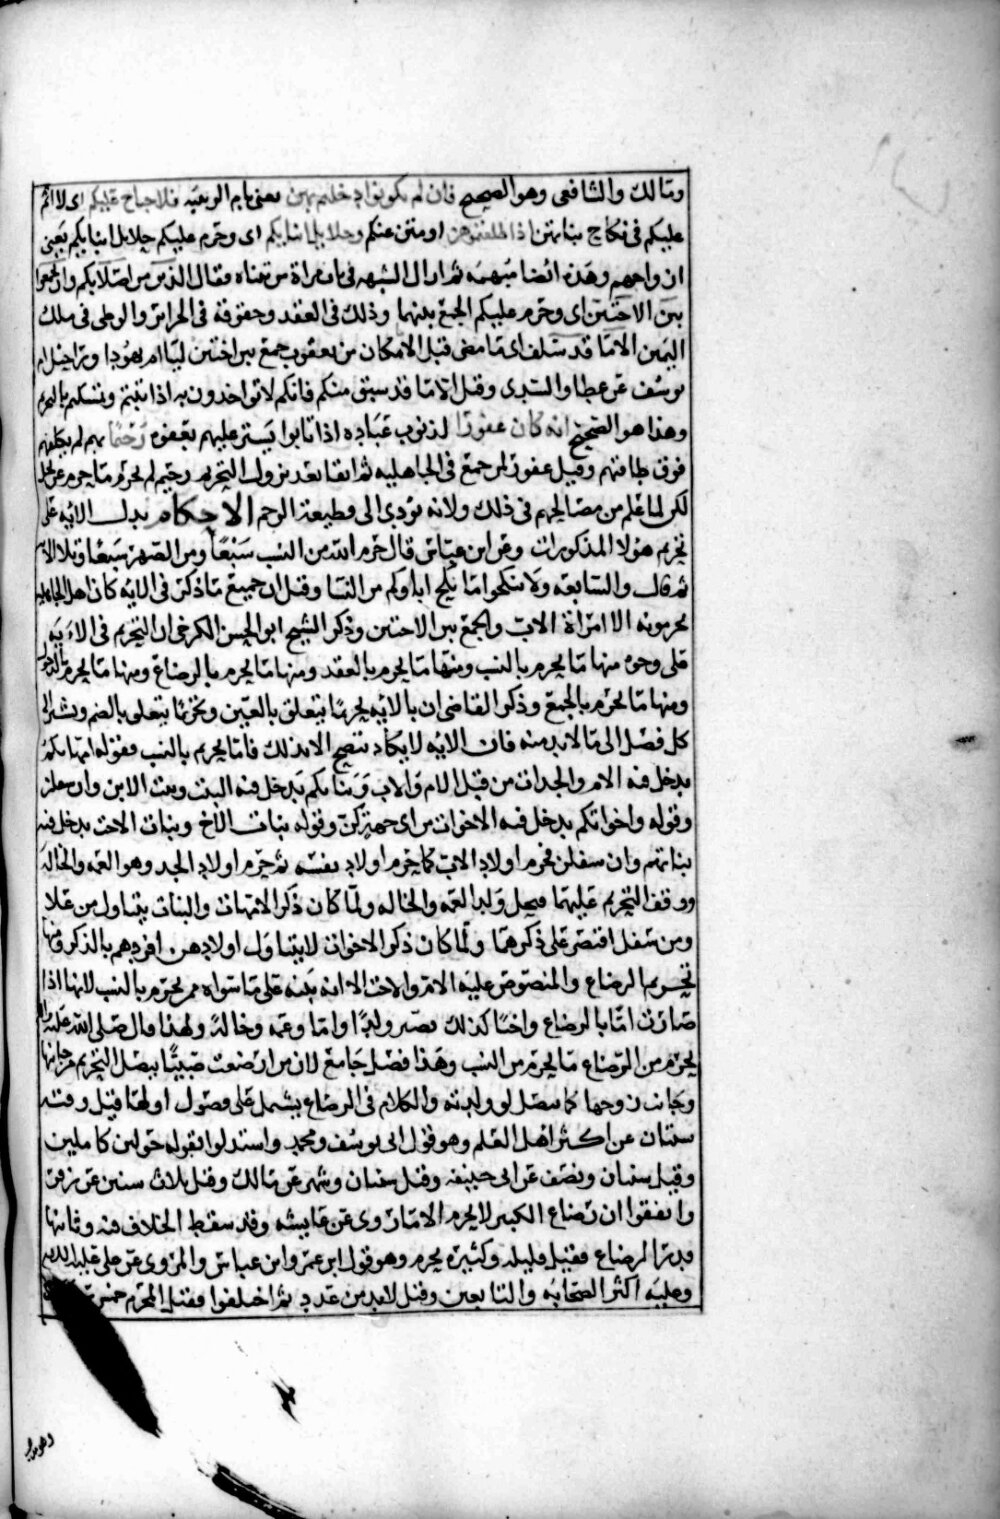 ومالك والشافعي وهو الصحيح فان لم تكونوا دخلتم بهن يعني بام الربيبه فلا جناح عليكم اى لا اثم
عليكم فى نكاح بناتهن اذا طلقتموهن او متن عنكم وحلايل ابنايكم اى وحرم عليكم حلايل ابنايكم يعنى
ازواجهم وهذه ايضا مبهمه ثم ازال الشبهه فى بات امراة من تبناه فقال الذين من اصلابكم وان تجمعوا
بين الاختين اى وحرم عليكم الجمع بينهما وذلك فى العقد وحقوقه فى الحراير والوطى فى ملك
اليمين الا ما قد سلف اى ما مضى قبل الامكان من يعقوب جمع بين اختين ليا ام يهودا وراحيل ام
يوسف عن عطا والسدى وقيل الا ما قد سبق منكم فانكم لا تواخذون به اذا تبتم
وهذا هو الصحيح انه كان غفورا لذنوب عباده اذا تابوا يستر عليهم بعفوه رحيما بهم لم يكلفهم
فوق طاقتهم وقيل غفور لمن جمع فى الجاهليه ثم اتقا بعد نزول التحريم رحيم لم يحرم ما حرم
لكن لما علم من مصالحهم فى ذلك ولانه تودى الى قطيعة الرحم الاحكام يدل الايه على
تحريم هولا المذكورات وعن ابن عباس قال حرم الله من النسب سبعا ومن الصهر سبعا وتلا الايه
ثم قال والسابعه ولا تنكحوا ما نكح اباوكم من النسا وقيل ان جميع ما ذكر فى الايه كان اهل الجاهليه
يحرمونه الا امراة الاب والجمع بين الاختين وذكر الشيخ ابو الحسن الكرخى ان التحريم فى الايه
على وجوه منها ما يحرم بالنسب ومنها ما يحرم بالعقد ومنها ما يحرم بالرضاع ومنها ما يحرم بالوطى
ومنها ما يحرم بالجمع وذكر القاضى ان بالايه تحريما يتعلق بالعين وتحريما يتعلق بالضم ونشير الى
كل فصل الى ما لا بد منه فان الايه لا يكاد تتضح الا بذلك فاما يحرم بالنسب فقوله امهاتكم
يدخل فيه الام والجدات من قبل الام والاب وبناتكم يدخل فيه البنت وبنت الابن وان سفلن
وقوله واخواتكم يدخل فيه الاخوات من اى جهة كن وقوله بنات الاخ وبنات الاخت يدخل فيه
بناتهم وان سفلن فحرم اولاد الاب كما حرم اولاد نفسه ثم حرم اولاد الجد وهو العمه والخاله
ووقف التحريم عليهما فيحل ولد العمه والخاله ولما كان ذكر الامهات والبنات يتناول من علا
ومن سفل اقتصر على ذكرهما ولما كان ذكر الاخوات لا يتناول اولادهن افردهم بالذكر ومنها
تحريم الرضاع والمنصوص عليه الام والاخت الا انه نبه على ما سواه ممن يحرم بالنسب لانها اذا
صارت اما بالرضاع واختا كذلك تصير ولدا واما وعمه وخالة ولهذا قال صلى الله عليه واله
يحرم من الرضاع ما يحرم من النسب وهذا فصل جامع لان من ارضعت صبيا يتصل التحريم من جانبها
وجانب زوجها كما يتصل لو ولدته والكلام فى الرضاع يشتمل على فصول اولها قيل وقته
سنتان عن اكثر اهل العلم وهو قول ابى يوسف ومحمد واستدلوا بقوله حولين كاملين
وقيل سنتان ونصف عن ابى حنيفه وقيل سنتان وشهر عن مالك وقيل ثلاث سنين عن زفر
واتفقوا ان رضاع الكبير لا يحرم الا ما روى عن عايشه وقد سقط الخلاف فيه وثانيها
قدر الرضاع فقيل قليله وكثيره يحرم وهو قول ابن عمر وابن عباس والمروى عن على عليه السلام
وعليه اكثر الصحابه والتابعين وقيل لا بد من عدد ثم اختلفوا فقيل المحرم خمس
وهو قول